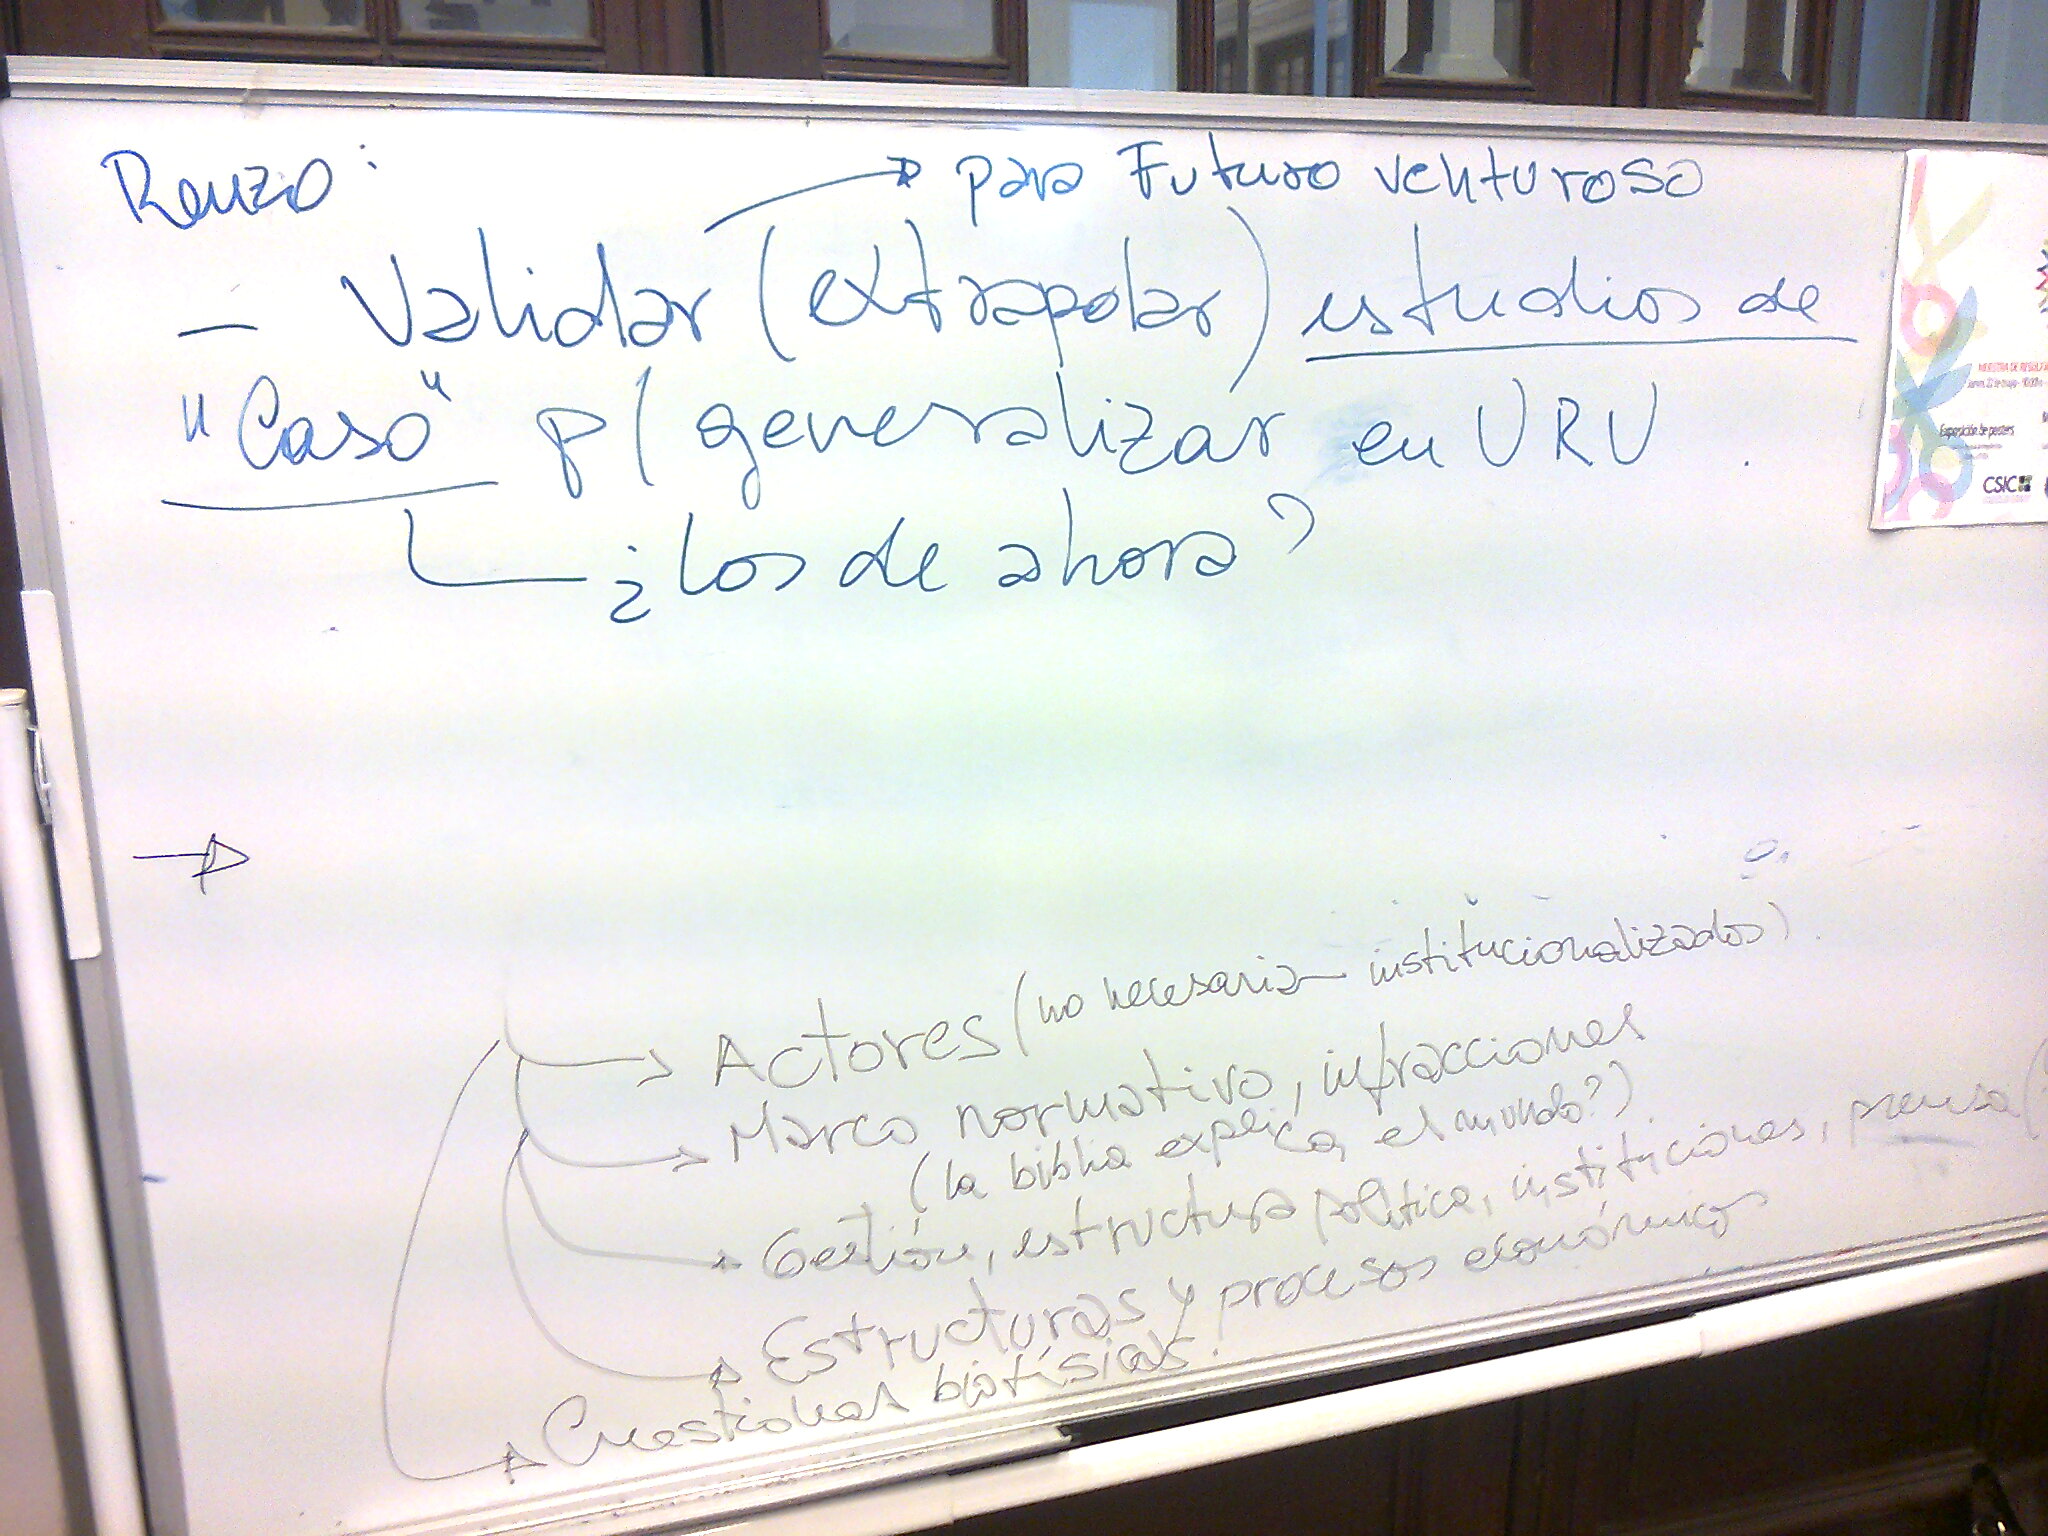 Renzo:
para Futuro venturoso
– Validar (extrapolar) estudios de
"Caso" p/ generalizar en URU.
¿Los de ahora?
Actores (no necesaria— institucionalizados)
Marco normativo, infracciones
(la biblia explica el mundo?).
Gestión, estructura política, instituciones, prensa (
Estructuras y procesos económicos
Cuestiones biofísicas.
MUESTRA DE RESULTA
Exposición de posters
CSIC